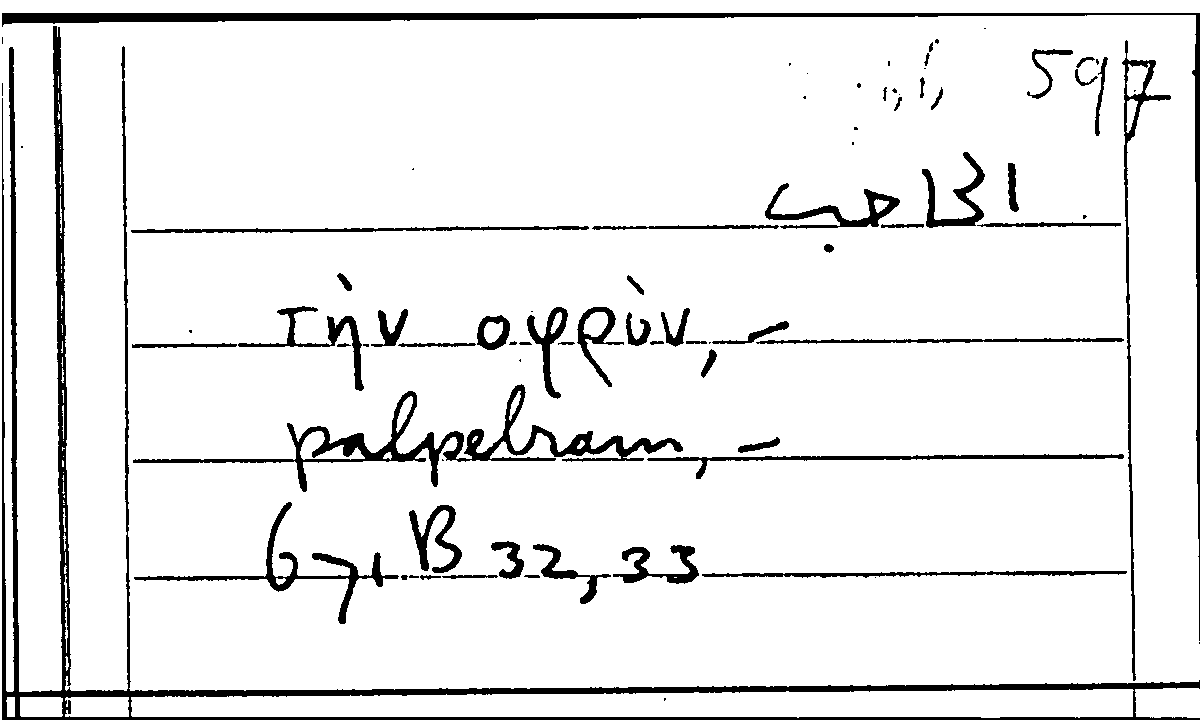 597
الحاجب
τὴν οφρὺν, –
palpebram, –
671 B 32, 33